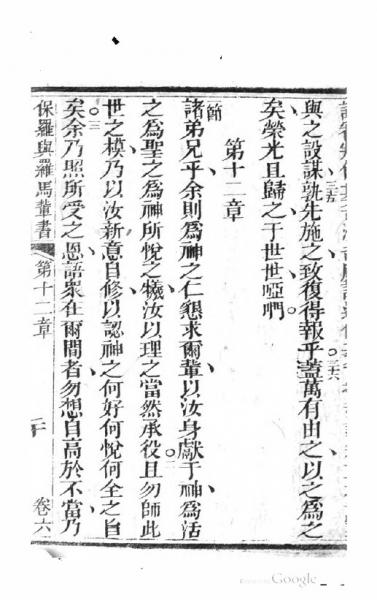 與之設謀孰先施之致復得報乎蓋萬有由之以之為之
矣榮光且歸之于世世啞們
第十二章
節
諸弟兄乎余則為神之仁懇求爾輩以汝身獻于神為活
之為聖之為神所悅之犧汝以理之當然承役且勿師此
世之模乃以汝新意自修以認神之何好何悅何全之旨
矣余乃照所受之恩語衆在爾間者勿想自高於不當乃
保羅與羅馬輩書 第十二章 卷六
Google